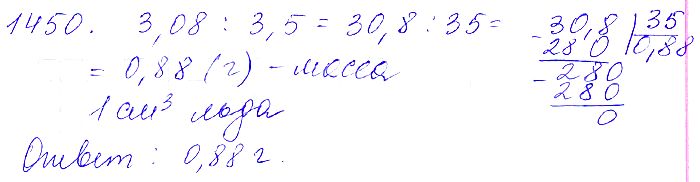 1450. 3,08 : 3,5 = 30,8 : 35 =
= 0,88 (г) - масса
1 см³ льда
Ответ : 0,88 г.
- 30,8 | 35
280 | 0,88
- 280
280
0